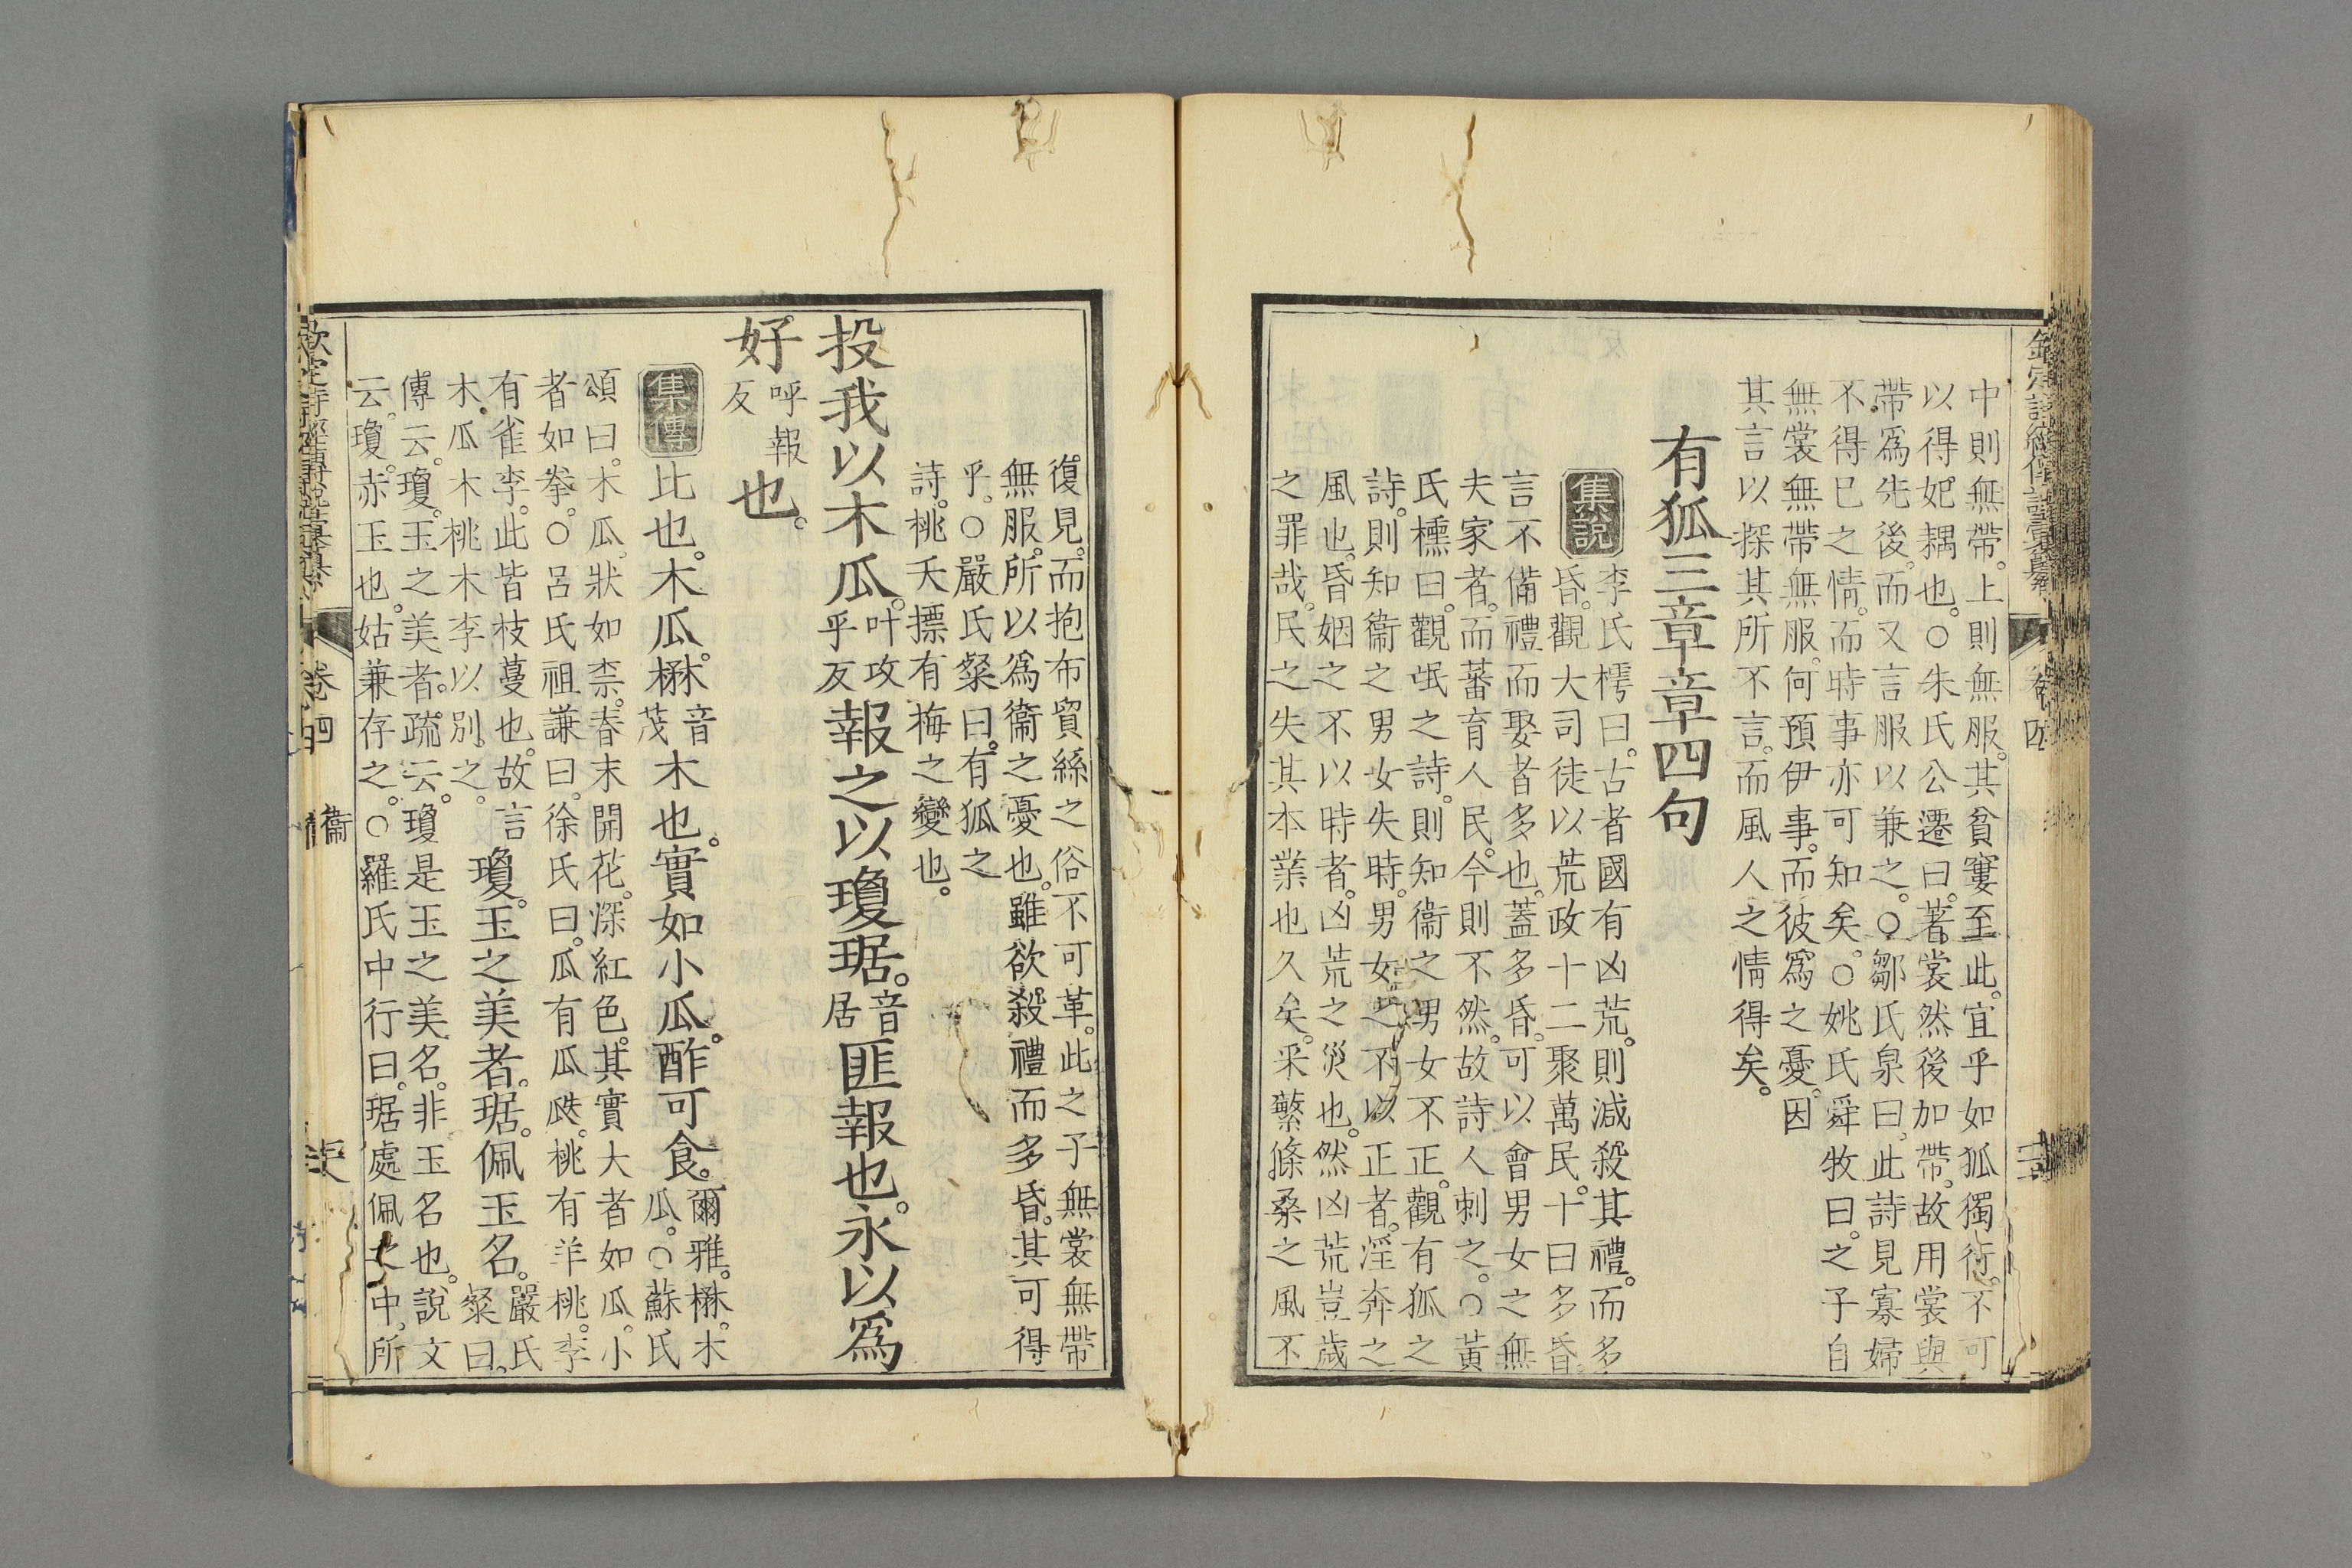 欽定詩經傳說彙纂 卷四
中則無帶。上則無服。其貧寠至此。宜乎如狐獨行。不可
以得妃耦也。○朱氏公遷曰。著裳然後加帶。故用裳與
帶爲先後。而又言服以兼之。○鄒氏泉曰。此詩見寡婦
不得已之情。而時事亦可知矣。○姚氏舜牧曰。之子自
無裳無帶無服。何預伊事。而彼爲之憂。因
其言以探其所不言。而風人之情得矣。
有狐三章章四句
集說
李氏樗曰。古者國有凶荒。則減殺其禮。而多
昏。觀大司徒以荒政十二聚萬民。十曰多昏。
言不備禮而娶者多也。蓋多昏。可以會男女之無
夫家者。而蕃育人民。今則不然。故詩人刺之。○黃
氏櫄曰。觀氓之詩。則知衞之男女不正。觀有狐之
詩。則知衞之男女失時。男女之不以正者。淫奔之
風也。昏姻之不以時者。凶荒之災也。然凶荒豈歲
之罪哉。民之失其本業也久矣。采蘩條桑之風不
復見。而抱布貿絲之俗不可革。此之子無裳無帶
無服。所以爲衞之憂也。雖欲殺禮而多昏。其可得
乎。○嚴氏粲曰。有狐之
詩。桃夭摽有梅之變也。
投我以木瓜。叶攻乎反報之以瓊琚。音居匪報也。永以爲
好呼報反也。
集傳
比也。木瓜。楙音茂木也。實如小瓜。酢可食。爾雅。楙。木瓜。○蘇氏
頌曰。木瓜。狀如柰。春末開花。深紅色。其實大者如瓜。小
者如拳。○呂氏祖謙曰。徐氏曰。瓜有瓜瓞。桃有羊桃。李
有雀李。此皆枝蔓也。故言木瓜木桃木李以別之。
瓊。玉之美者。琚。佩玉名。嚴氏粲曰。
傳云。瓊。玉之美者。疏云。瓊是玉之美名。非玉名也。說文
云。瓊。赤玉也。姑兼存之。○羅氏中行曰。琚處佩之中。所
欽定詩經傳說彙纂 卷四 衞